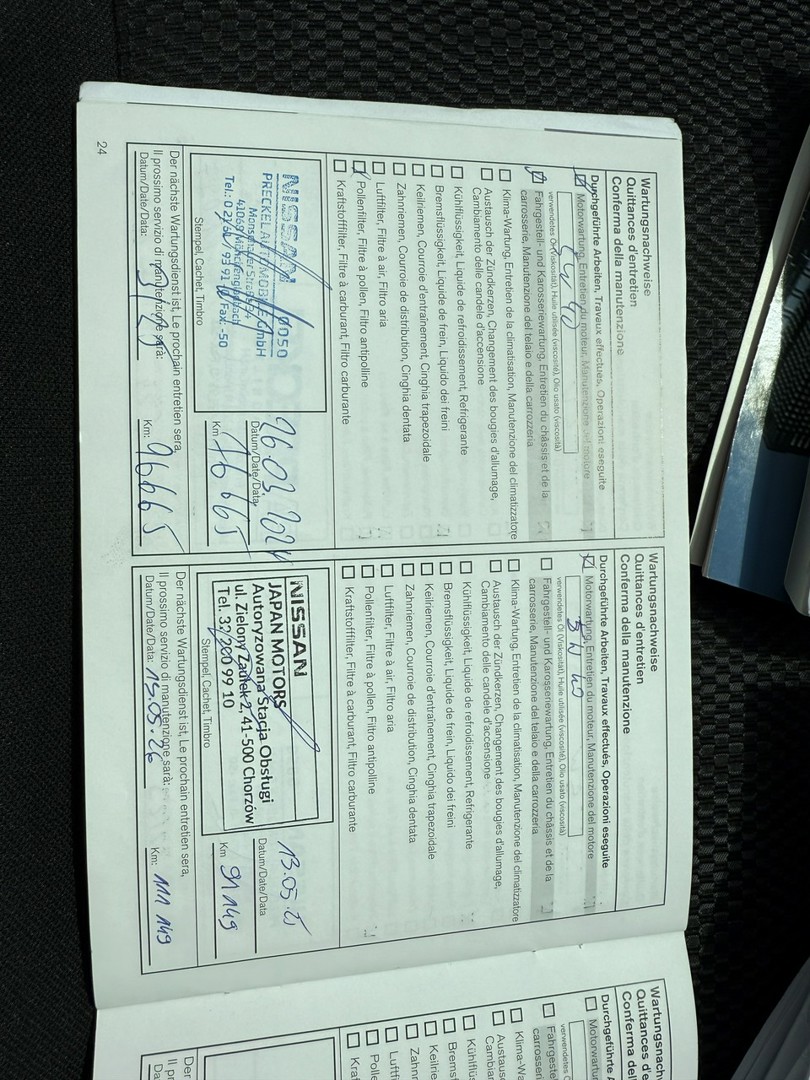 Wartungsnachweise
Quittances d'entretien
Conferma della manutenzione
Durchgeführte Arbeiten, Travaux effectués, Operazioni eseguite
Motorwartung, Entretien du moteur, Manutenzione del motore
verwendetes Öl (Viskosität), Huile utilisée (viscosité), Olio usato (viscosità)
Fahrgestell- und Karosseriewartung, Entretien du châssis et de la
carrosserie, Manutenzione del telaio e della carrozzeria
Klima-Wartung, Entretien de la climatisation, Manutenzione del climatizzatore
Austausch der Zündkerzen, Changement des bougies d'allumage,
Cambiamento delle candele d'accensione
Kühlflüssigkeit, Liquide de refroidissement, Refrigerante
Bremsflüssigkeit, Liquide de frein, Liquido dei freini
Keilriemen, Courroie d'entraînement, Cinghia trapezoidale
Zahnriemen, Courroie de distribution, Cinghia dentata
Luftfilter, Filtre à air, Filtro aria
Pollenfilter, Filtre à pollen, Filtro antipolline
Kraftstofffilter, Filtre à carburant, Filtro carburante
NISSAN
PRECKEL AUTOMOBILE GmbH
Tel.: 0 21 Fax: -50
26.03.2024
Datum/Date/Data
Stempel, Cachet, Timbro
Km 76665
Der nächste Wartungsdienst ist, Le prochain entretien sera,
Il prossimo servizio di manutenzione sarà:
Datum/Date/Data: Km: 96665
24
Wartungsnachweise
Quittances d'entretien
Conferma della manutenzione
Durchgeführte Arbeiten, Travaux effectués, Operazioni eseguite
Motorwartung, Entretien du moteur, Manutenzione del motore
5W40
verwendetes Öl (Viskosität), Huile utilisée (viscosité), Olio usato (viscosità)
Fahrgestell- und Karosseriewartung, Entretien du châssis et de la
carrosserie, Manutenzione del telaio e della carrozzeria
Klima-Wartung, Entretien de la climatisation, Manutenzione del climatizzatore
Austausch der Zündkerzen, Changement des bougies d'allumage,
Cambiamento delle candele d'accensione
Kühlflüssigkeit, Liquide de refroidissement, Refrigerante
Bremsflüssigkeit, Liquide de frein, Liquido dei freini
Keilriemen, Courroie d'entraînement, Cinghia trapezoidale
Zahnriemen, Courroie de distribution, Cinghia dentata
Luftfilter, Filtre à air, Filtro aria
Pollenfilter, Filtre à pollen, Filtro antipolline
Kraftstofffilter, Filtre à carburant, Filtro carburante
NISSAN
JAPAN MOTORS
Autoryzowana Stacja Obsługi
ul. Zielony Zaułek 2, 41-500 Chorzów
Tel. 32 200 99 10
13.05.25
Datum/Date/Data
Stempel, Cachet, Timbro
Km 91149
Der nächste Wartungsdienst ist, Le prochain entretien sera,
Il prossimo servizio di manutenzione sarà:
Datum/Date/Data: 15.05.26 Km: 111 149
Wartungsnach
Quittances d'e
Conferma del
Durchgeführte A
Motorwartu
verwendetes
Fahrgeste
carrosseri
Klima-Wa
Austausc
Cambia
Kühlflüs
Brems
Keilrie
Zahn
Luftf
Polle
Kra
Der
Il pr
Da